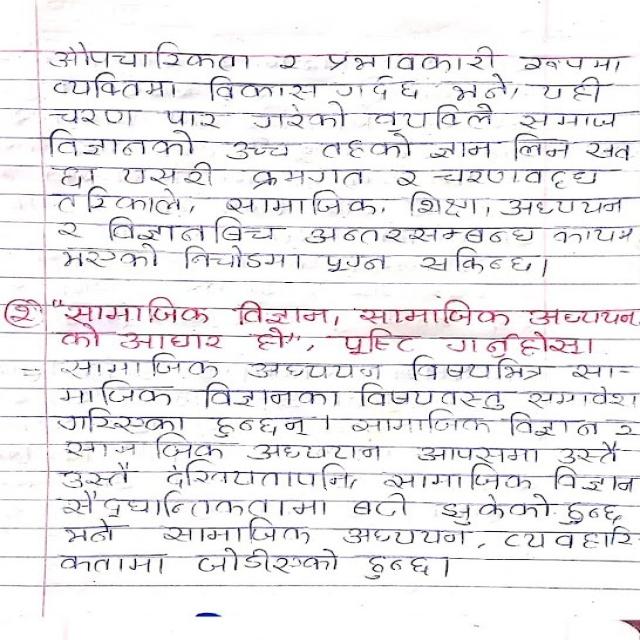 औपचारिकता र प्रभावकारी रूपमा
व्यक्तिमा विकास गर्दछ भने, यही
चरण पार गरेको व्यक्तिले समाज
विज्ञानको उच्च तहको ज्ञान लिन सक
छ। यसरी क्रमगत र चरणवद्ध
तरिकाले, सामाजिक, शिक्षा, अध्ययन
र विज्ञानबिच अन्तरसम्बन्ध कायम
भएको निचोडमा पुग्न सकिन्छ।
(२) "सामाजिक विज्ञान, सामाजिक अध्ययन
को आधार हो", पुष्टि गर्नुहोस।
= सामाजिक अध्ययन विषयभित्र सा-
माजिक विज्ञानका विषयवस्तु समावेश
गरिएका हुन्छन्। सामाजिक विज्ञान र
सामाजिक अध्ययन आपसमा उस्तै
उस्तै देखियतापनि, सामाजिक विज्ञान
सैद्धान्तिकतामा बढी झुकेको हुन्छ
भने सामाजिक अध्ययन, व्यवहारि-
कतामा जोडीएको हुन्छ।